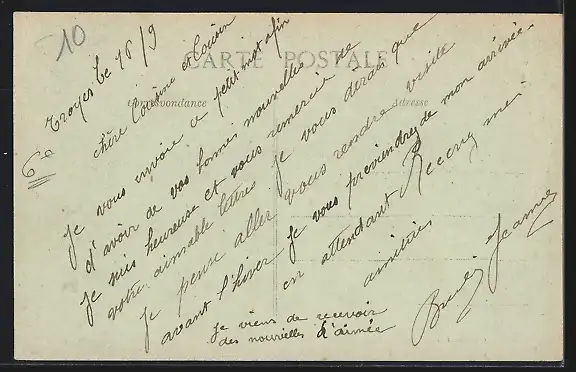 10
CARTE POSTALE
Correspondance
Adresse
Troyes le 16/9
6e
chère Cousine et Cousin
Je vous envoie ce petit mot afin
d'avoir de vos bonnes nouvelles
je suis heureuse et vous remercie de
votre aimable lettre je vous dirais que
Je pense aller vous rendre visite
avant l'hiver je vous préviendrez de mon arrivée.
en attendant Recevez mes
amitiés
Jeanne
je viens de recevoir
des nouvelles d'aimée